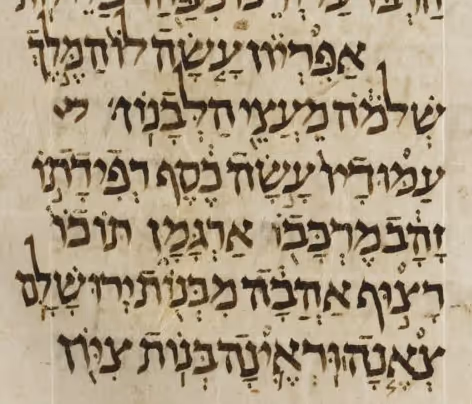 אַפִּרְיוֹן עָשָׂה לוֹ הַמֶּלֶךְ
שְׁלֹמֹה מֵעֲצֵי הַלְּבָנוֹן׃
עַמּוּדָיו עָשָׂה כֶסֶף רְפִידָתוֹ
זָהָב מֶרְכָּבוֹ אַרְגָּמָן תּוֹכוֹ
רָצוּף אַהֲבָה מִבְּנוֹת יְרוּשָׁלִָם
צְאֶנָה וּרְאֶינָה בְּנוֹת צִיּוֹן